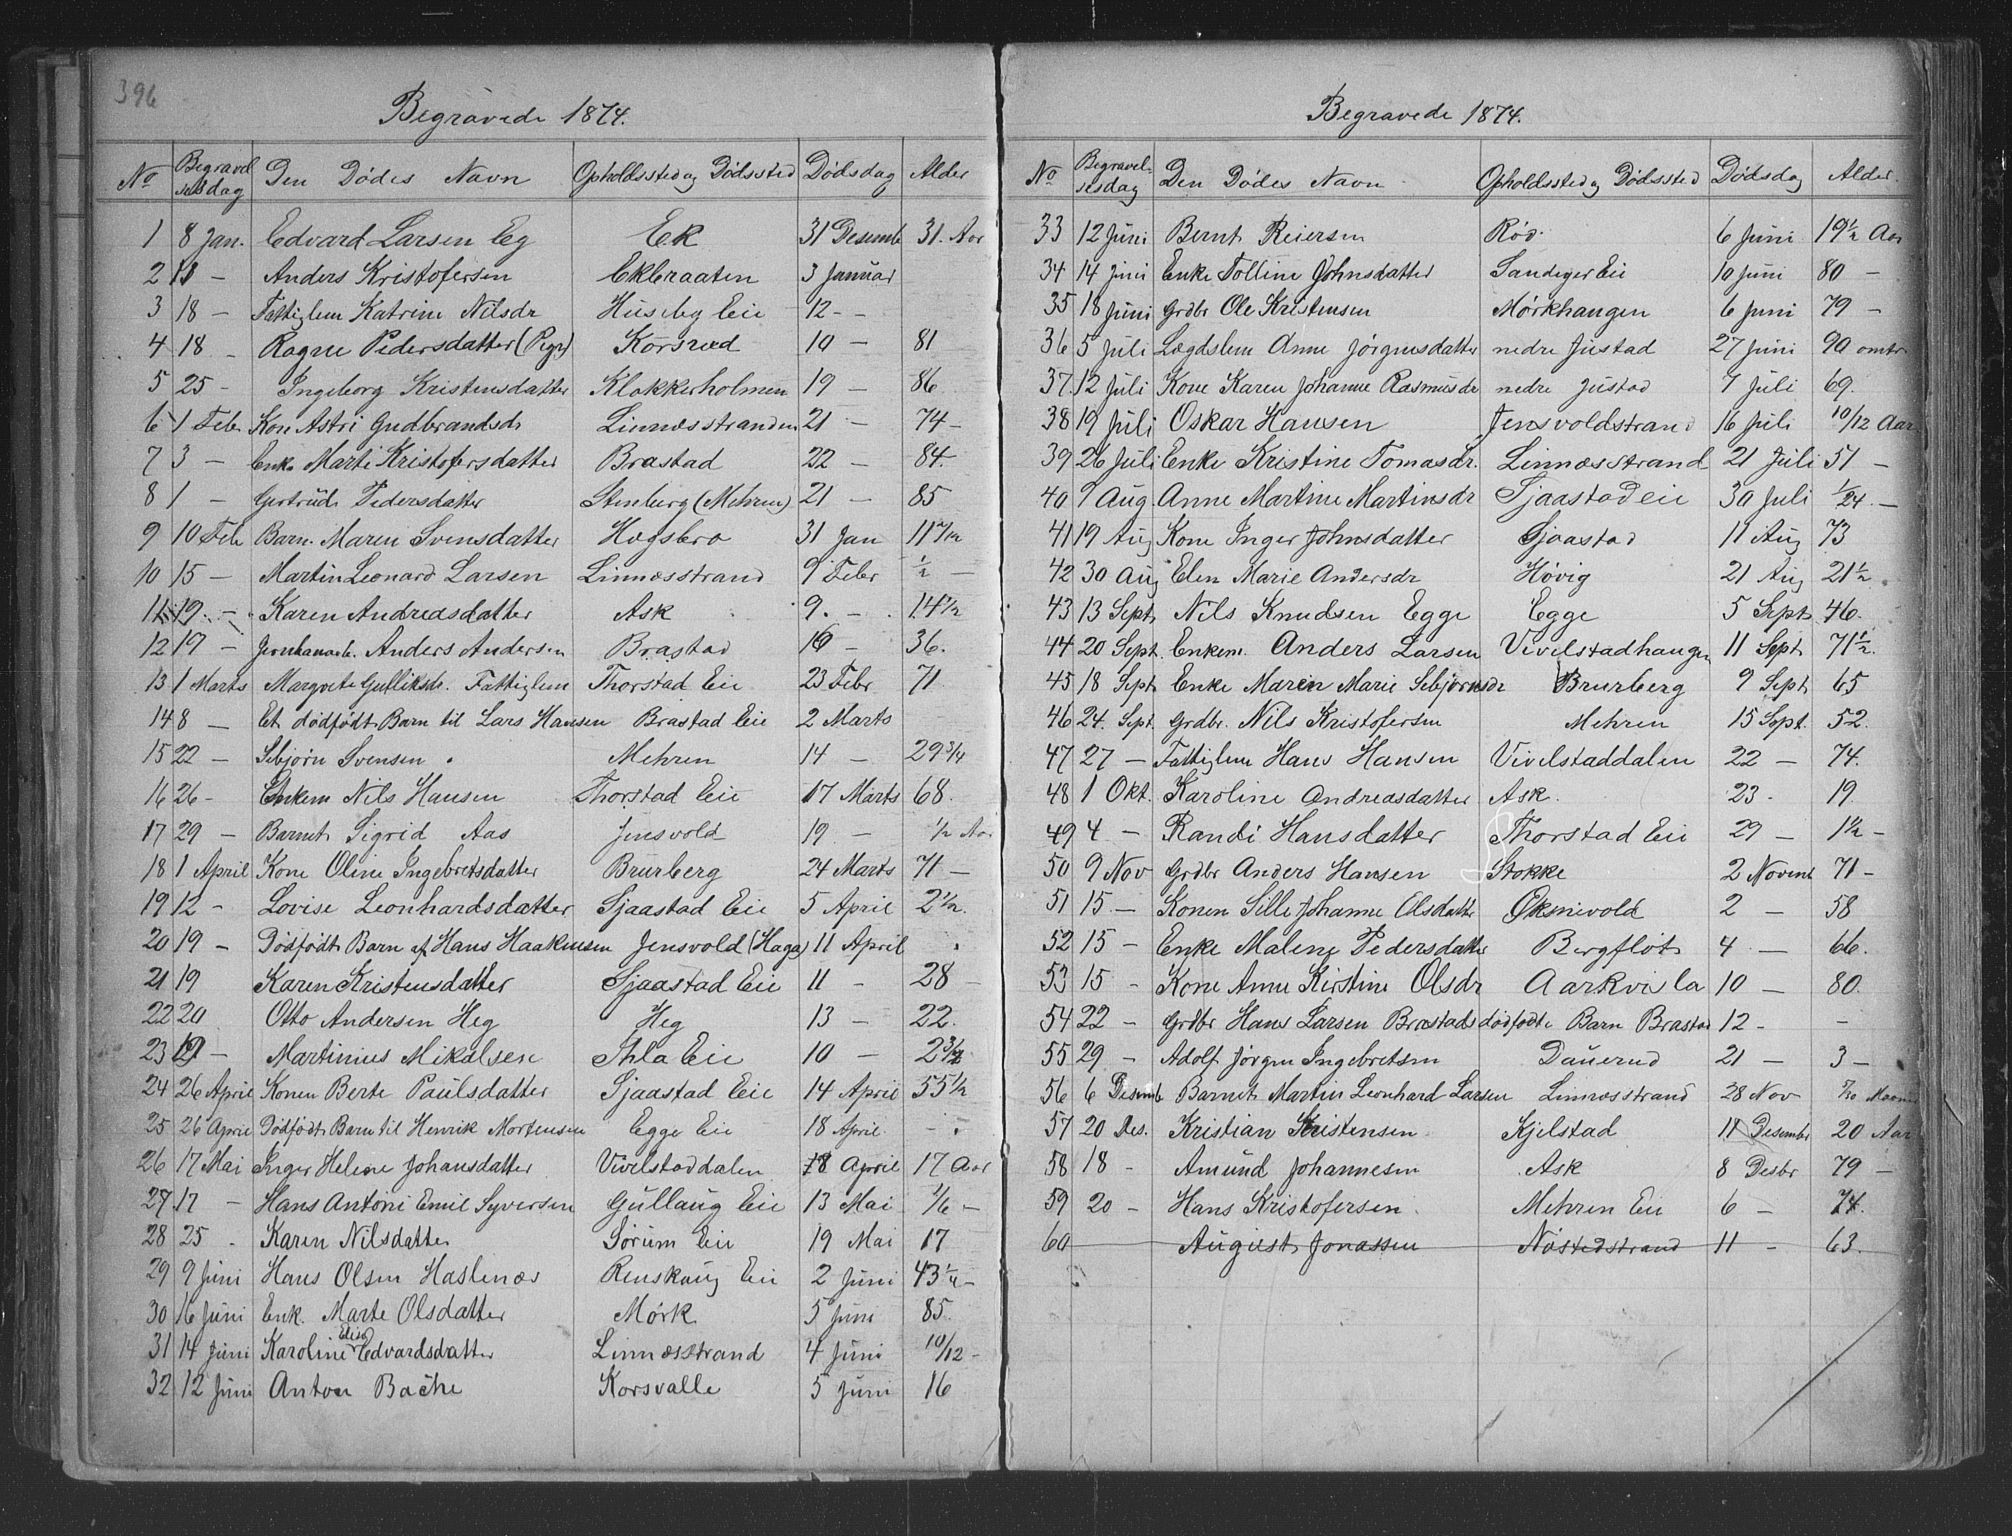 396
Begravede 1874.
No Begravelsesdag Den Dødes Navn Opholdssted og Dødssted Dødsdag Alder
1 8 Jan. Edvard Larsen Eg Ek 31 Desemb 31. Aar
2 11 — Anders Kristofersen Ekbraaten 3 Januar
3 18 — Fattiglem Katrine Nilsdr Huseby Eie 12 - -
4 18 — Ragne Pedersdatter (Pige) Korsrud 10 — 81
5 25 - Ingeborg Kristensdatter Klokkerholmen 19 — 86
6 1 Febr Kon Astri Gudbrandsdr Linnæsstranden 21 — 74 -
7 3 — Enke Marti Kristofersdatter Brastad 22 — 84.
8 1 — Gertrude Pedersdatter Stenberg (Mehren) 21 — 85
9 10 Feb Barn. Maren Svensdatter Høgsbro 31 Jan 11 7/12
10 15 — Martin Leonard Larsen Linnæsstrand 9 Febr 1/2 —
11 19. — Karen Andreasdatter Ask 9. - 14 1/2
12 19 — Anders Andersen Brastad 10 — 36.
13 1 Marts Margrete Gulliksdr. Fattiglem Thorstad Eie 23 Febr 71
14 8 — Et dødfødt Barn til Lars Hansen Brastad Eie 2 Marts
15 22 — Sebjørn Svensen Mehren 14 — 29 3/4
16 26 - Enkem Nils Hansen Thorstad Eie 17 Marts 68.
17 29 — Barnet Sigrid Aas Jensvold 19 — 1/2 Aar
18 1 April Kone Oline Ingebretsdatter Brurberg 24 Marts 71 —
19 12 - Lovise Leonhardsdatter Sjaastad Eie 5 April 2 1/2.
20 19 - Dødfødt Barn af Hans Haakensen Jensvold (Haga) 11 April
21 19 Karen Kristensdatter Sjaastad Eie 11 - 28 -
22 20 Otto Andersen Heg Heg 13 — 22.
23 19 - Martinius Mikalsen Ihla Eie 10 — 2 3/4
24 26 April Konen Berte Paulsdatter Sjaastad Eie 14 April 55 1/2
25 26 April Dødfødt Barn til Henrik Mortensen Egge Eie 18 April. -
26 17 Mai Inger Helene Johansdatter Vivelstaddalen 18 April 17 Aar
27 17 - Hans Antoni Emil Syversen Gullaug Eie 13 Mai 1/6 -
28 25 - Karen Nilsdatter Sørum Eie 19 Mai 17
29 9 Juni Hans Olsen Haslenæs Renskaug Eie 2 Juni 43 1/4 -
30 16 Juni Enk. Marte Olsdatter Mørk 5 Juni 85.
31 14 Juni Karoline Elise Edvardsdatter Linnæsstrand 4 Juni 10/12 -
32 12 Juni Anton Bache Korsvalle 5 Juni 16
Begravede 1874.
No Begravelsesdag Den Dødes Navn Opholdssted og Dødssted Dødsdag Alder.
33 12 Juni Bernt Reiersen Rød. 6 Juni 19 1/2 Aar
34 14 juni Enke Tolline Johnsdatter Sandeger Eie 10 juni 80 —
35 18 Juni Grdbr Ole Kristensen Mørkhangen 6 Juni 79 -
36 5 Juli Lægdslem Anne Jørgensdatter nedre Justad 27 Juni 90 omtr
37. 12 Juli Kone Karen Johanne Rasmusdr nedre Justad 7 Juli 69.
38 19 Juli Oskar Hansen Jensvoldstrand 16 Juli 10/12 Aar
39 26 Juli Enke Kristine Tomasdr. Linnæsstrand 21 Juli 51 —
40 9 Aug Anne Martine Martinsdr Sjaastad eie 30 Juli 1/24. —
41 19 Aug Kone Inger Johnsdatter Sjaastad 11 Aug 73
42 30 Aug Elen Marie Andersdr Høvig 21 Aug 21 1/2.
43 13 Sept Nils Knudsen Egge Egge 5 Sept 46.
44 20 Sept. Enkem. Anders Larsen Vivelstadhaugen 11 Sept 71 1/2.
45 18 Sept Enke Maren Marie Sebjørnsdr Brurberg 9 Sept 65
46 24. Sept. Grdbr. Nils Kristofersen Mehren 15 Sept. 52.
47 27 — Fattiglem Hans Hansen Vivelstaddalen 22 — 74.
48 1 Okt. Karoline Andreasdatter Ask. 23 - 19.
49 4 — Randi Hansdatter Thorstad Eie 29 — 1 1/2 -
50 9 Nov Grdbr Anders Hansen Stokke 2 Novemb 71 -
51 15 — Konen Sille Johanne Olsdatter Øksnevold 2 — 58
52 15 - Enke Malene Pedersdatter Bergfløt 4 — 66.
53 15 - Kone Anne Kirstine Olsdr Aarkvisla 10 — 80.
54 22 - Grdbr Hans Larsen Brastads dødfødte Barn Brastad 12 - -
55 29 - Adolf Jørgen Ingebretsen Dauerud 21 — 3 —
56 6 Desemb Barnet Martin Leonhard Larsen Linnæsstrand 28 Nov
57 20 Des. Kristian Kristensen Kjelstad 11 Desembr 20 Aar
58 18 - Amund Johannesen Ask 8 Desbr 79 -
59 20 - Hans Kristofersen Mehren Eie 6 - 74.
60 August Jonassen Nøstedstrand 11 - 63.